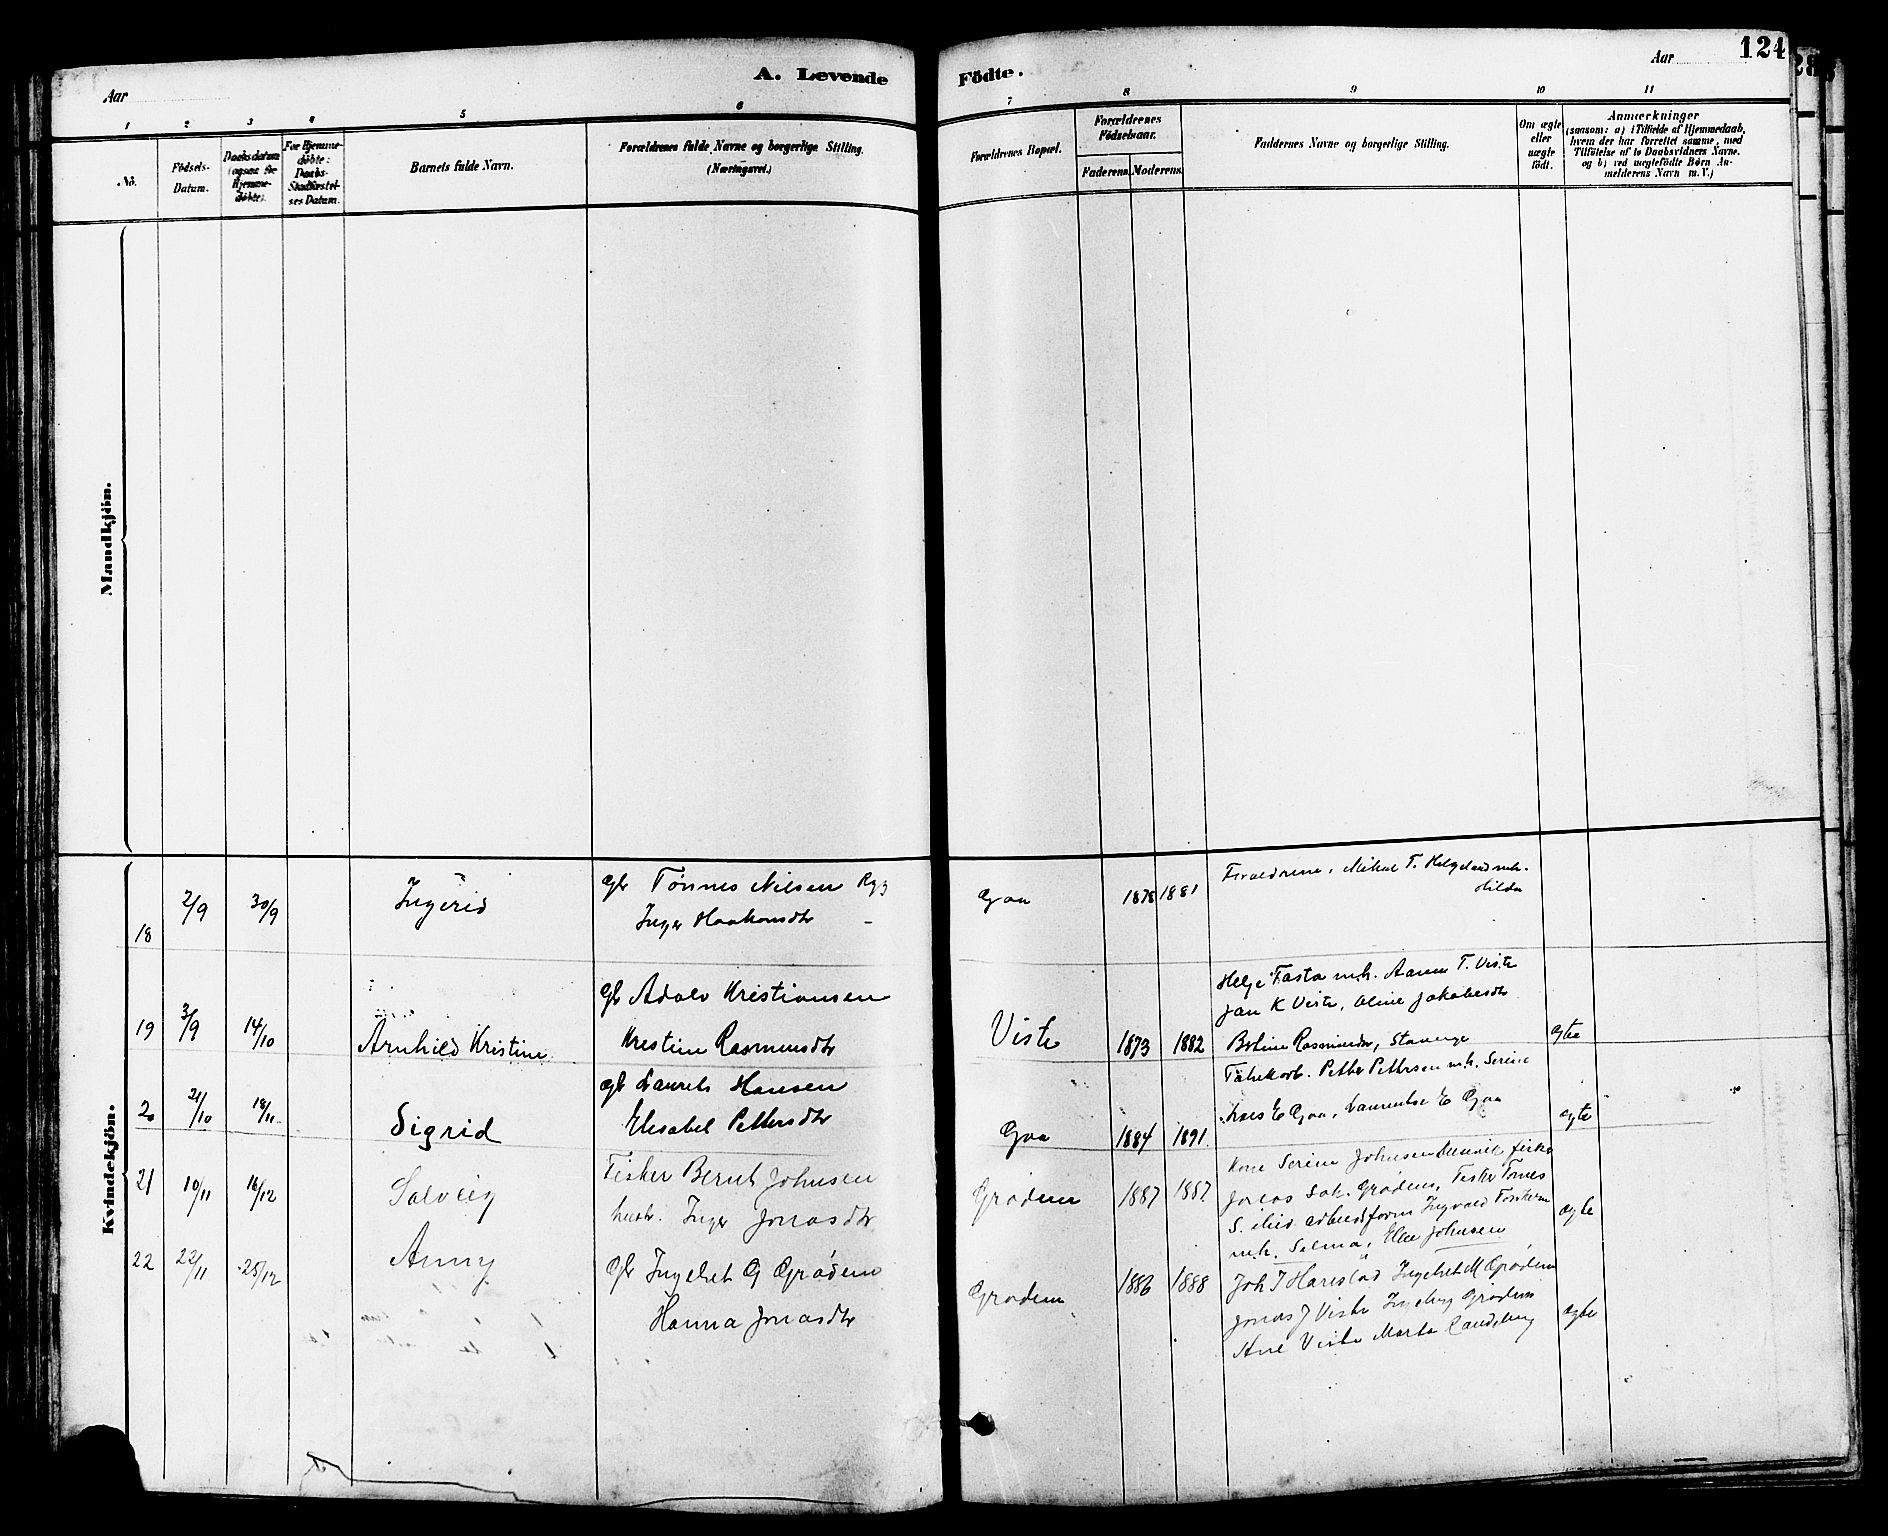 A. Levende Födte.
Aar
Aar
124
1 2 3 4 5 6 7 8 9 10 11
No.
Födsels-Datum.
Daabsdatum (ogsaa for Hjemmedöbte).
For Hjemmedöbte: Daabs-Stadfæstelses Datum.
Barnets fulde Navn.
Forældrenes fulde Navne og borgerlige Stilling.
(Næringsvei.)
Forældrenes Bopæl.
Forældrenes Födselsaar.
Faderens. Moderens.
Faddernes Navne og borgerlige Stilling.
Om ægte eller uægte födt.
Anmærkninger
(saasom: a) i Tilfælde af Hjemmedaab,
hvem der har forrettet samme, med
Tilföielse af to Daabsvidners Navne.
og b) ved uægtefödte Börn An-
melderens Navn m.V.)
Mandkjön.
Kvindekjön.
18 2/9 30/9 Ingerid
Gbr Tönnes Nilsen Ryg
Inger Haakonsdtr -
Goa 1878 1881
Forældrene, Mikal T. Helgeland m.h.
Hilda
19 3/9 14/10 Arnhild Kristine
Gbr Adolv Kristiansen
Kristine Rasmusdtr
Viste 1873 1882
Helge Tasta m.h. Aanen T. Viste
Jan K Viste, Oline Jakobsdtr
Bertine Rasmusdtr, Stavanger
ægte
20 21/10 18/11 Sigrid
Gbr Laurits Hansen
Elisabet Pettersdtr
Goa 1884 1891
Petter Pettersen m.h. Serine
Lars E Goa, Laurentse E Goa
ægte
21 10/11 16/12 Solveig
Fisker Bernt Johnsen
hustr. Inger Jonasdtr
Grödem 1887 1887
Kone Serine Johnsen
Jonas Sak. Grödem, Fisker Tönes
Ingvald
m.h. Selma, Elle Johnsen
ægte
22 22/11 25/12 Anny
Gbr Ingebret G Grödem
Hanna Jonasdtr
Grödem 1886 1888
Joh J Harestad Ingebret M Grödem
Jonas J Viste Ingeborg Grödem
Ane Viste Marta Randeberg
ægte